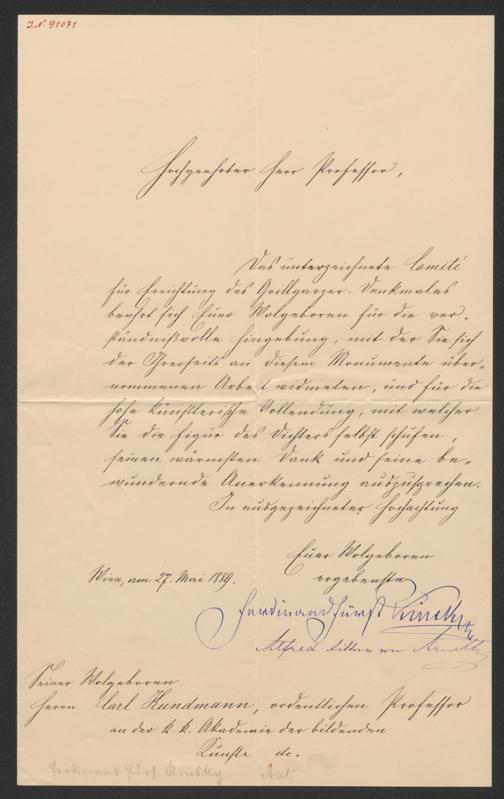 J.N. 91071
Hochgeehrter Herr Professor,
Das unterzeichnete Comité
für Errichtung des Grillparzer-Denkmales
beehrt sich Euer Wolgeboren für die ver-
ständnißvolle Hingebung, mit der Sie sich
der Ihrerseits an diesem Monumente über-
nommenen Arbeit widmeten, und für die
hohe künstlerische Vollendung, mit welcher
Sie die Figur des Dichters selbst schufen,
seinen wärmsten Dank und seine be-
wundernde Anerkennung auszusprechen.
In ausgezeichneter Hochachtung
Euer Wolgeboren
ergebenste
Wien, am 27. Mai 1889.
Ferdinand Fürst Kinsky
Alfred Ritter von Arneth
Seiner Wolgeboren
Herrn Carl Kundmann, ordentlichen Professor
an der k. k. Akademie der bildenden
Künste etc.
Ferdinand Fürst Kinsky